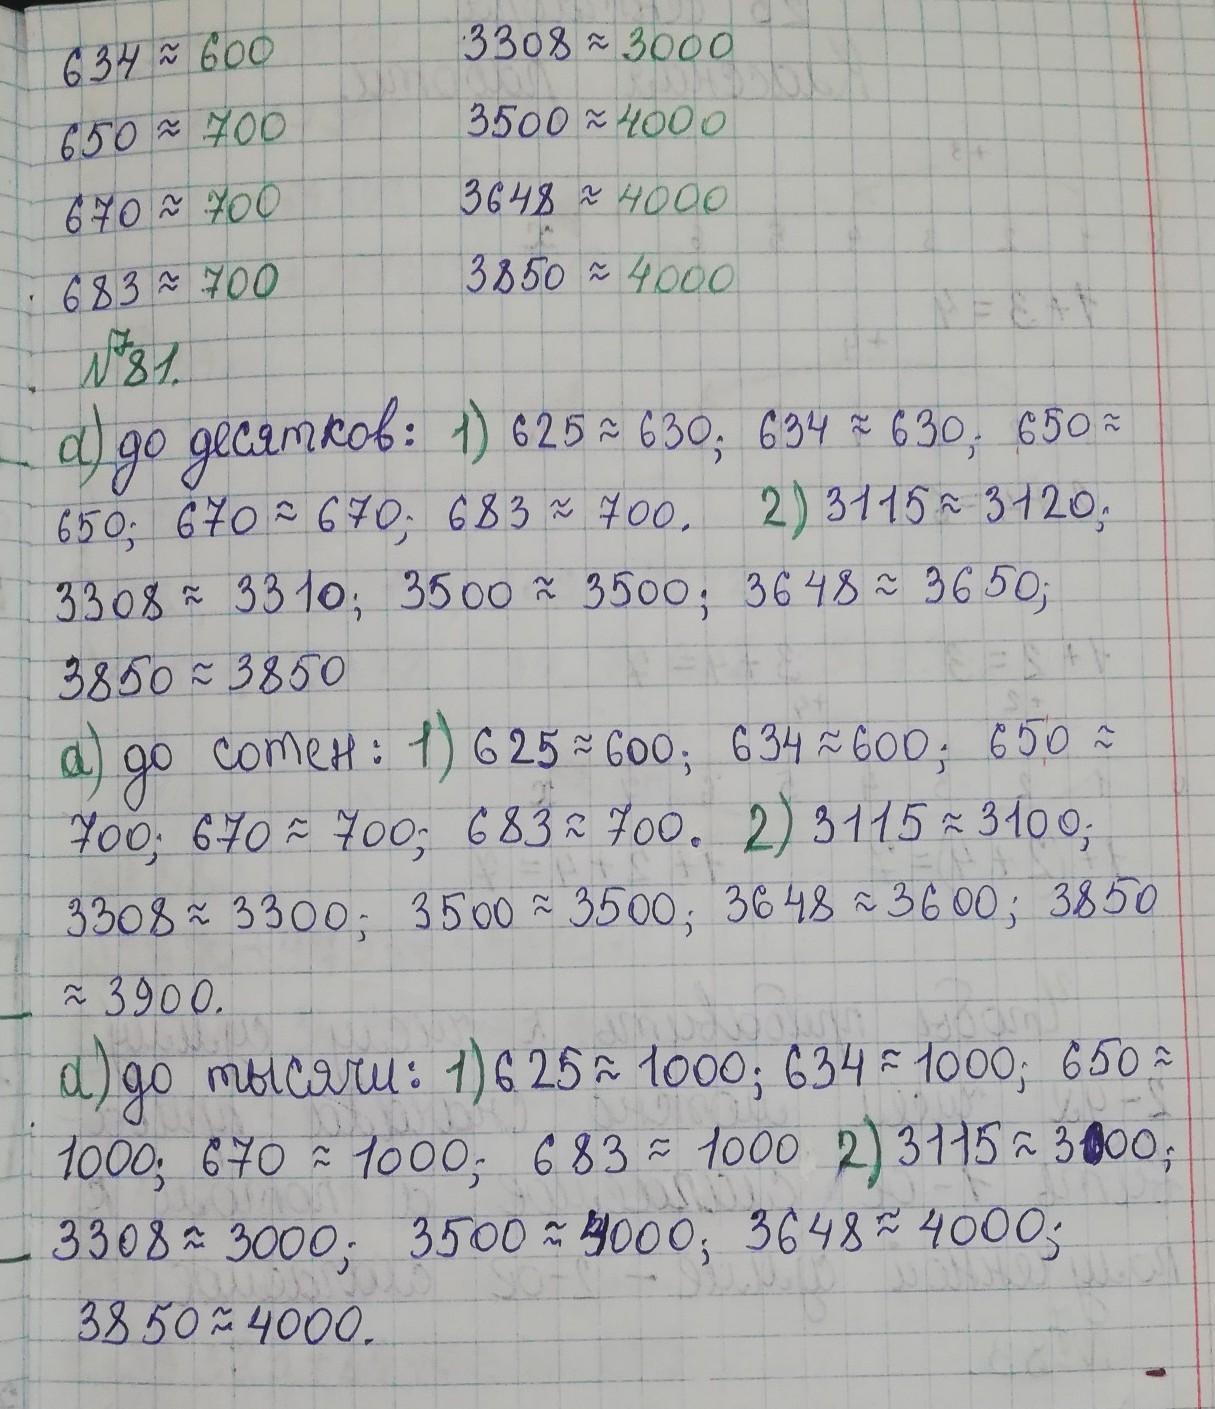 634 ≈ 600 3308 ≈ 3000
650 ≈ 700 3500 ≈ 4000
670 ≈ 700 3648 ≈ 4000
683 ≈ 700 3850 ≈ 4000
№ 781.
а) до десятков: 1) 625 ≈ 630; 634 ≈ 630; 650 ≈
650; 670 ≈ 670; 683 ≈ 700. 2) 3115 ≈ 3120;
3308 ≈ 3310; 3500 ≈ 3500; 3648 ≈ 3650;
3850 ≈ 3850
а) до сотен: 1) 625 ≈ 600; 634 ≈ 600; 650 ≈
700; 670 ≈ 700; 683 ≈ 700. 2) 3115 ≈ 3100;
3308 ≈ 3300; 3500 ≈ 3500; 3648 ≈ 3600; 3850
≈ 3900.
а) до тысячи: 1) 625 ≈ 1000; 634 ≈ 1000; 650 ≈
1000; 670 ≈ 1000; 683 ≈ 1000 2) 3115 ≈ 3000;
3308 ≈ 3000; 3500 ≈ 4000; 3648 ≈ 4000;
3850 ≈ 4000.